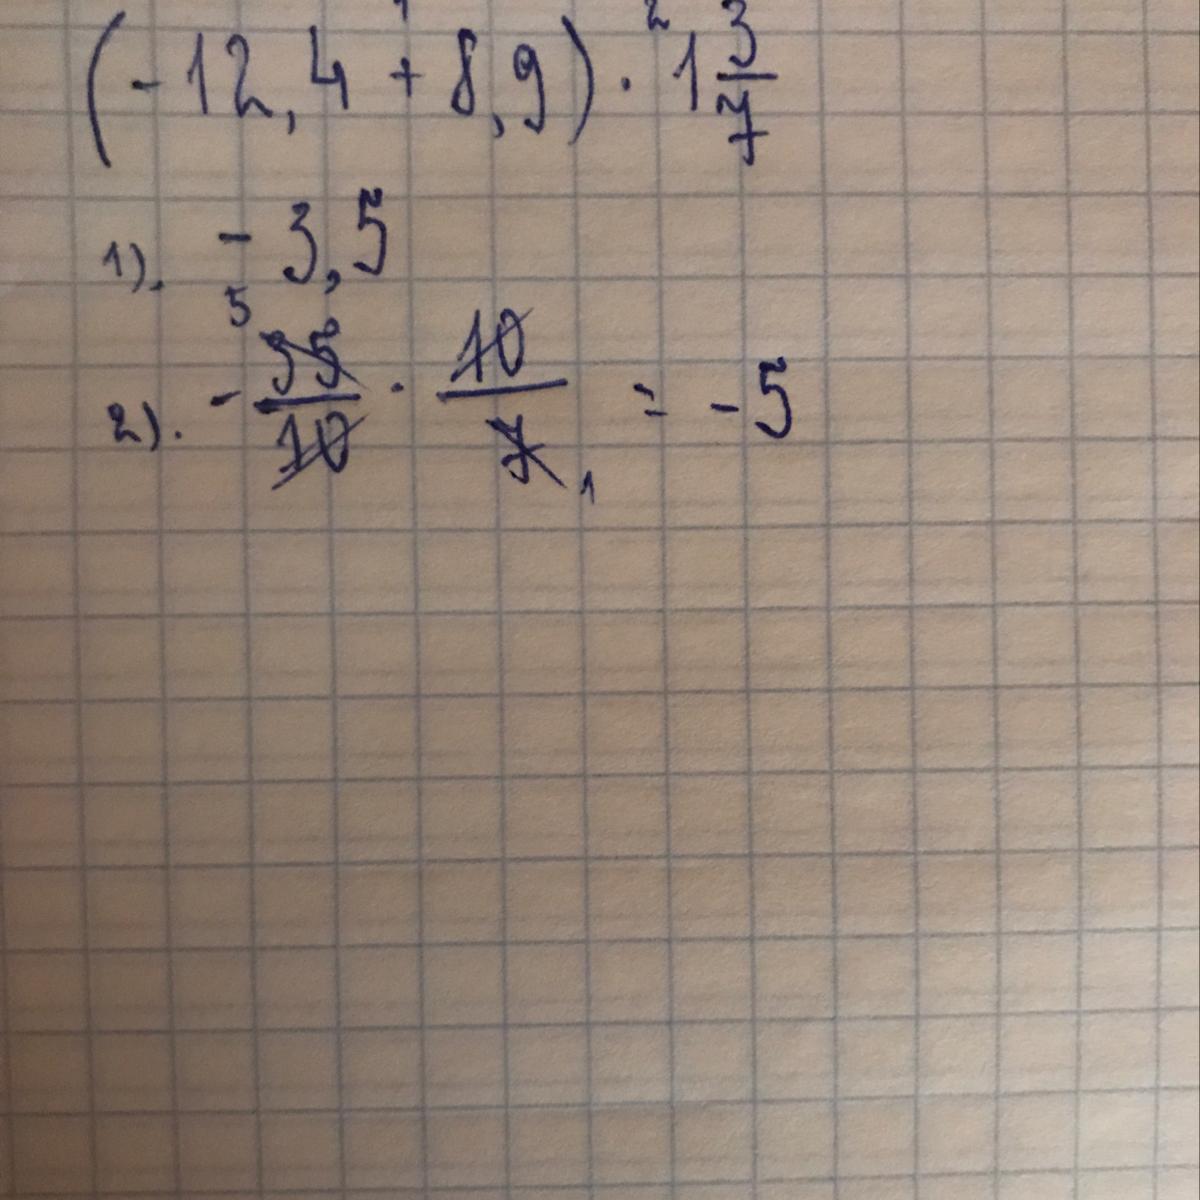 (-12,4 + 8,9) · 1 3/7
1). -3,5
2). -35/10 · 10/7 = -5